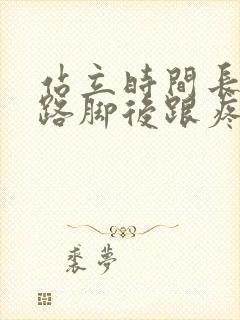 站立時間長
路脚後跟疼
裘夢